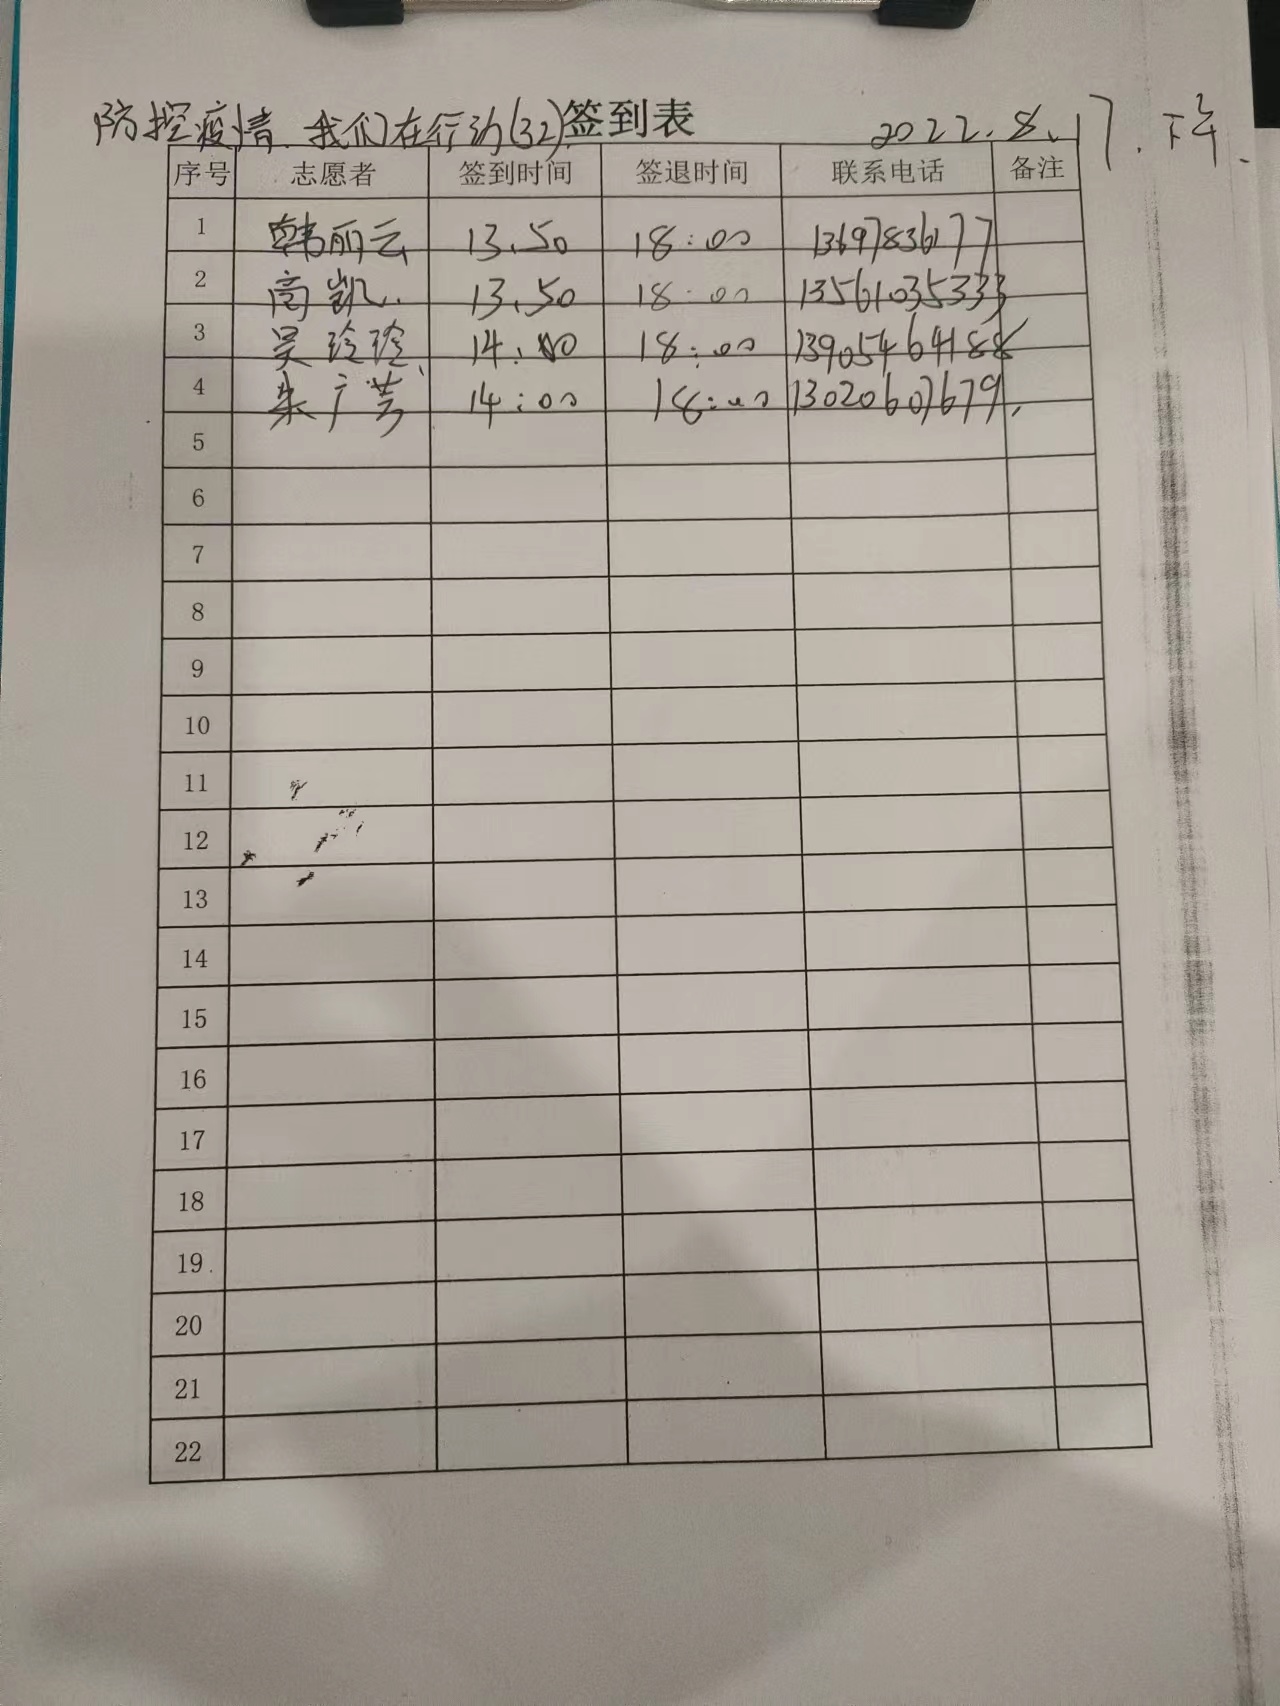 防控疫情.我们在行动(32)签到表 2022.8.17.下午.
序号 志愿者 签到时间 签退时间 联系电话 备注
1 韩丽云 13.50 18:00 13697836177
2 高凯. 13.50 18:00 13561035333
3 吴玲玲 14:00 18:00 13905464188
4 朱广芳 14:00 18:00 13020607679.
5
6
7
8
9
10
11
12
13
14
15
16
17
18
19
20
21
22